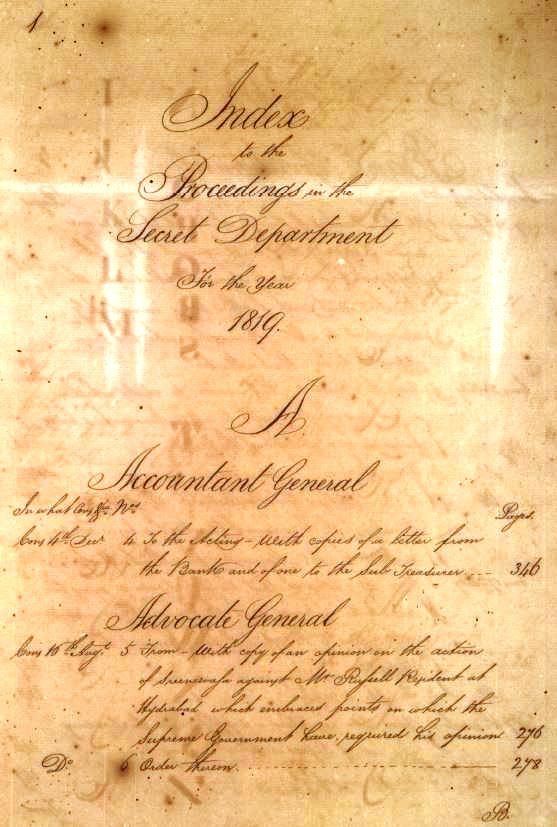 1
Index
to the
Proceedings in the
Secret Department
For the Year
1819.
A
Accountant General
In what Cons &c. Nos
Pages.
Cons 4th 4 To the Acting - With copies of a letter from
the Bank and of one to the Sub Treasurer 346
Advocate General
Cons 16th Augt 5 From - With copy of an opinion on the action
of Sreenewasa against Mr Russell Resident at
Hydrabad which embraces points on which the
Supreme Government have required his opinion 276
Do 6 Order thereon. 278
B.